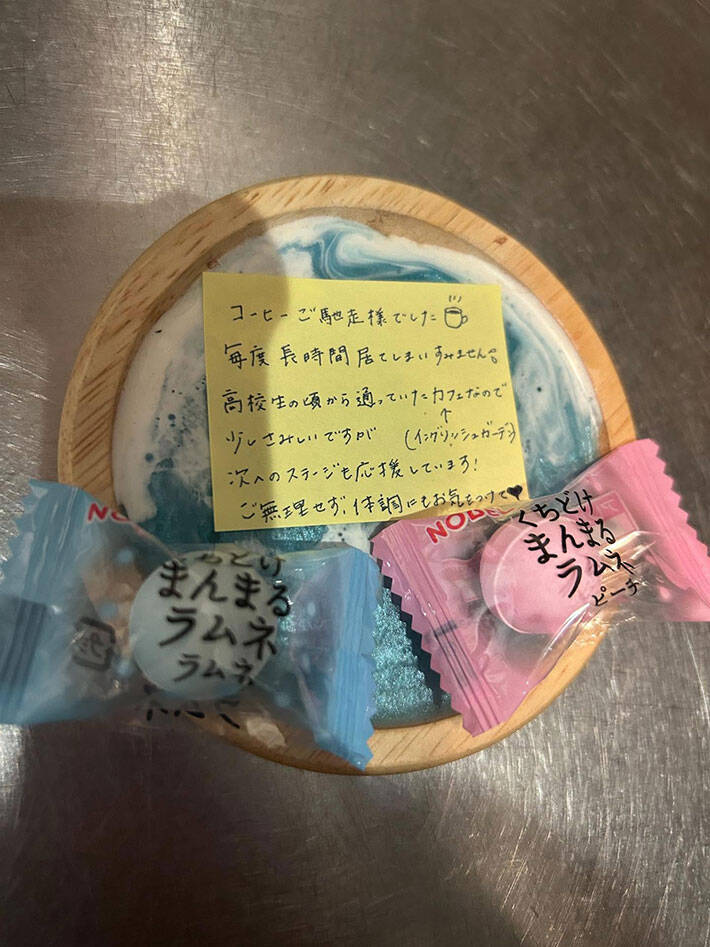 コーヒーご馳走様でした
毎度長時間居てしまいすみません。
高校生の頃から通っていたカフェなので
↑
少しさみしいですが (イングリッシュガーデン)
次へのステージも応援しています!
ご無理せず、体調にもお気をつけて♥
NOB
くちどけ
まんまる
ラムネ
ラムネ
プラ
NOBEL
くちどけ
まんまる
ラムネ
ピーチ